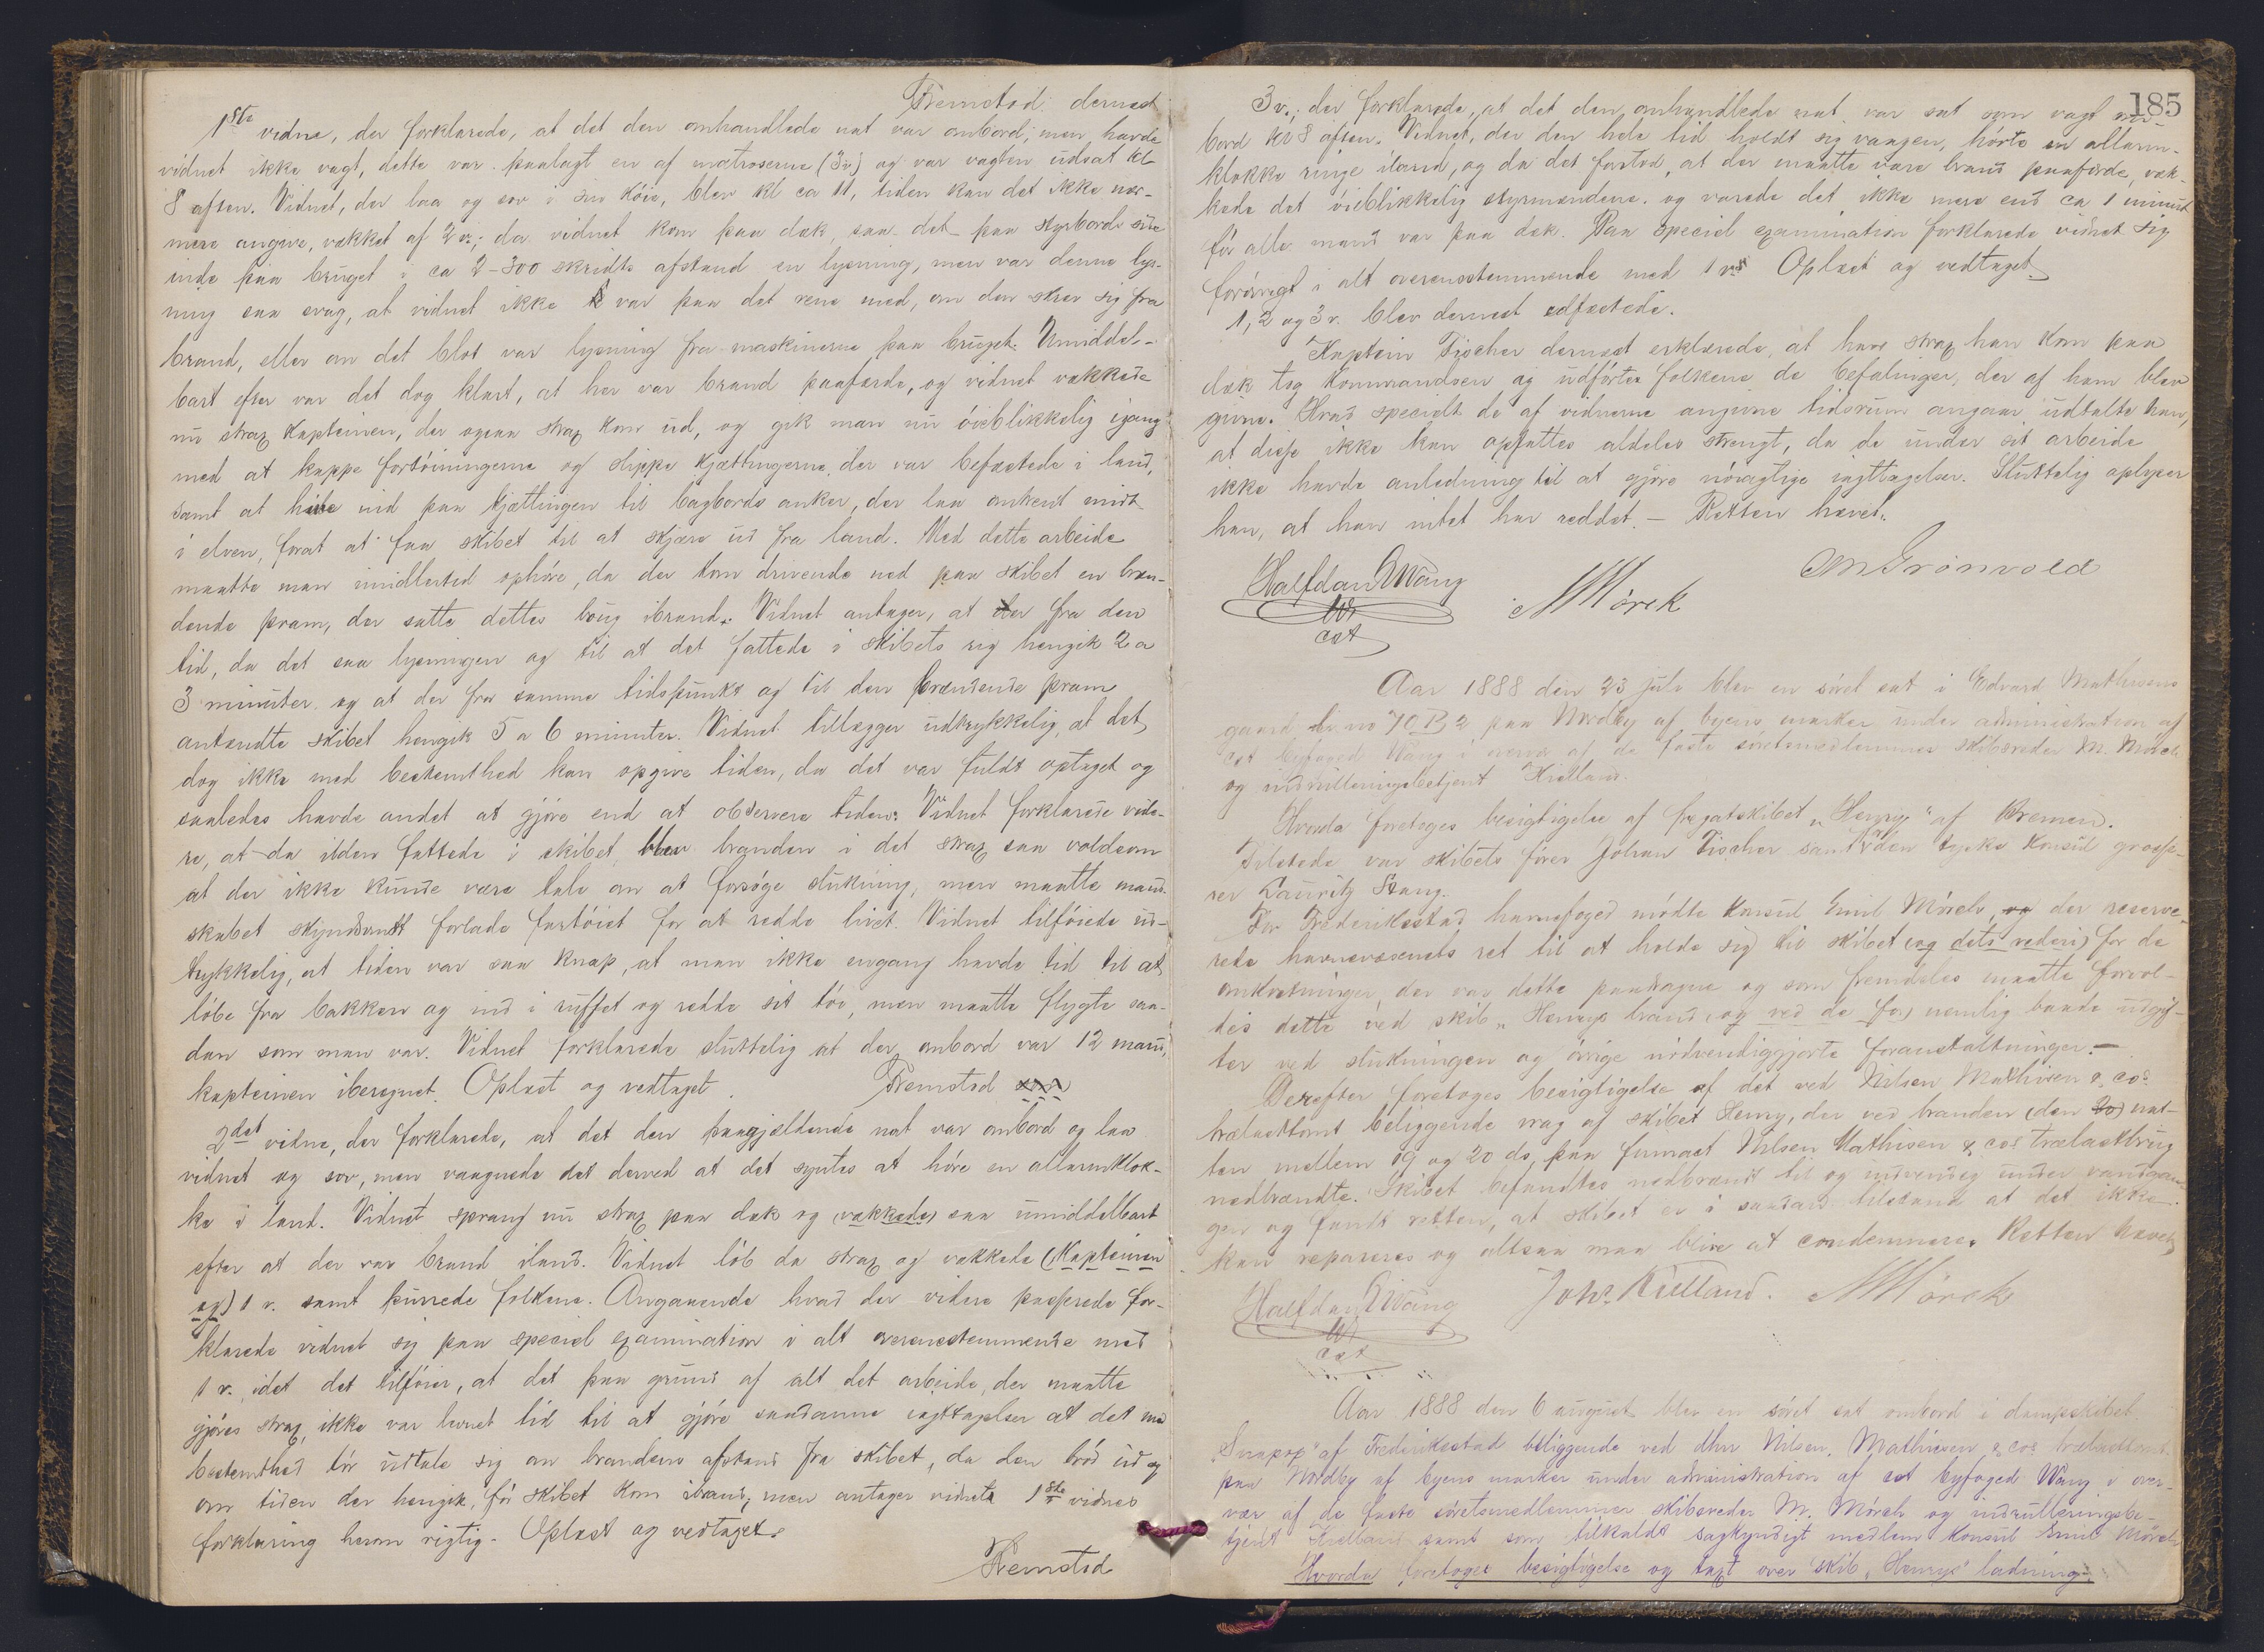 Fremstod dernæst
1ste vidne, der forklarede, at det den omhandlede nat var ombord; men havde
vidnet ikke vagt, dette var paalagt en af matroserne (3v) og var vagten udsat kl
8 aften. Vidnet, der laa og sov i sin köie, blev kl ca 11, tiden kan det ikke nær-
mere angive, vækket af 2 v.; da vidnet kom paa dæk, saa det paa styrbords side
inde paa bruget i ca 2-300 skridts afstand en lysning, men var denne lys-
ning saa svag, at vidnet ikke var paa det rene med, om den skrev sig fra
brand, eller om det blot var lysning fra maskinerne paa bruget. Umiddel-
bart efter var det dog klart, at her var brand paafærde, og vidnet vækkede
nu strax kapteinen, der ogsaa strax kom ud, og gik man nu öieblikkelig igang
med at kappe fortöiningerne og slippe kjættingerne der var befæstede i land,
samt at hive ind paa kjættingen til bagbords anker, der laa omtrent midt
i elven, forat at faa skibet til at skjære ud fra land. Med dette arbeide
maatte man imidlertid ophöre, da der kom drivende ned paa skibet en bræn-
dende pram, der satte dettes boug ibrand. Vidnet antager, at der fra den
tid, da det saa lysningen og til at det fattede i skibets rig hengik 2 a
3 minuter og at der fra samme tidspunkt og til den brændende pram
antændte skibet hengik 5 a 6 minuter. Vidnet tillægger udtrykkelig, at det
dog ikke med bestemthed kan opgive tiden, da det var fuldt optaget og
saaledes havde andet at gjöre end at observere tiden. Vidnet forklarede vide-
re, at da ilden fattede i skibet, blev branden i det strax saa voldsom
at der ikke kunde være tale om at forsöge slukning, men maatte mand-
skabet skyndsomt forlade fartöiet for at redde livet. Vidnet tilföiede ud-
trykkelig, at tiden var saa knap, at man ikke engang havde tid til at
löbe fra bakken og ind i ruffet og redde sit töi, men maatte flygte saa-
dan som man var. Vidnet forklarede sluttelig at der ombord var 12 mand,
kapteinen iberegnet. Oplæst og vedtaget. Fremstod
2det vidne, der forklarede, at det den paagjældende nat var ombord og laa
vidnet og sov, men vaagnede det derved at det syntes at höre en allarmklok-
ke i land. Vidnet sprang nu strax paa dæk og (vækkede) saa umiddelbart
efter at der var brand iland. Vidnet löb da strax og vækkede (Kapteinen
og) 1 v. samt purrede folkene. Angaaende hvad der videre passerede for-
klarede vidnet sig paa speciel examination i alt overensstemmende med
1 v. idet det tilföier, at det paa grund af alt det arbeide, der maatte
gjöres strax, ikke var levnet tid til at gjöre saadanne iagttagelser at det med
bestemthed tör udtale sig om brandens afstand fra skibet, da den bröd ud og
om tiden der hengik, för skibet kom ibrand; men antager vidnet 1ste vidnes
forklaring herom rigtig. Oplæst og vedtaget.
Fremstod
185
3 v.; der forklarede, at det den omhandlede nat var sat som vagt om-
bord kl 8 aften. Vidnet, der den hele tid holdt sig vaagen, hörte en allarm-
klokke ringe iland, og da det forstod, at der maatte være brand paafærde, væk-
kede det öieblikkelig styrmændene og varede det ikke mere end ca 1 minut
för alle mand var paa dæk. Paa speciel examination forklarede vidnet sig
forövrigt i alt overensstemmende med 1 v. Oplæst og vedtaget.
1, 2 og 3 v. blev dernæst edfæstede.
Kaptein Fischer dernæst erklærede, at have strax han kom paa
dæk tog kommandoen og udförte folkene de befalinger, der af ham blev
givne. Hvad specielt de af vidnerne angivne tidsrum angaar udtalte han,
at disse ikke kan opfattes aldeles strengt, da de under sit arbeide
ikke havde anledning til at gjöre nöiagtige iagttagelser. Sluttelig oplyser
han, at han intet har reddet. — Retten hævet.
Halfdan Wang
cst
M Mörck
Grönvold
Aar 1888 den 23 juli blev en söret sat i Edvard Mathisens
gaard br. no 70 B 2 paa Nordby af byens marker under administration af
cst byfoged Wang i overvær af de faste söretsmedlemmer skibsreder M. Mörch
og indrulleringsbetjent Kielland.
Hvorda foretoges besigtigelse af fregatskibet „Henry" af Bremen.
Tilstede var skibets förer Johan Fischer samt den tyske konsul gross-
rer Lauritz Stang.
For Frederiksstad havnefoged mödte konsul Emil Mörch, der reserve-
rede havnevæsenets ret til at holde sig til skibet (og dets rederi) for de
omkostninger, der var dette paadragne og som fremdeles maatte forvol-
des dette ved skib „Henrys brand (og ved de for) nemlig baade udgif-
ter ved slukningen og övrige nödvendiggjorte foranstaltninger. —
Derefter foretoges besigtigelse af det ved Nilsen Mathisen & cos
trælasttomt beliggende vrag af skibet Henry, der ved branden (den 20) nat-
ten mellem 19 og 20 ds, paa firmaet Nilsen Mathisen & cos trælastbrug
nedbrændte. Skibet befandtes nedbrændt til og indvendig under vandgan-
gen og fandt retten, at skibet er i saadan tilstand at det ikke
kan repareres og altsaa maa blive at condemnere. Retten hævet
Halfdan Wang
cst
Johs. Kielland.
M Mörch
Aar 1888 den 6 august blev en söret sat ombord i dampskibet
af Frederiksstad beliggende ved dhrr Nilsen, Mathiesen & cos trælasttomt
paa Nordby af byens marker under administration af cst byfoged Wang i over-
vær af de faste söretsmedlemmer skibsreder M. Mörch og indrulleringsbe-
tjent Kielland samt som tilkaldt sagkyndigt medlem konsul Emil Mörch
Hvorda foretoges besigtigelse og taxt over skib „Henrys" ladning.